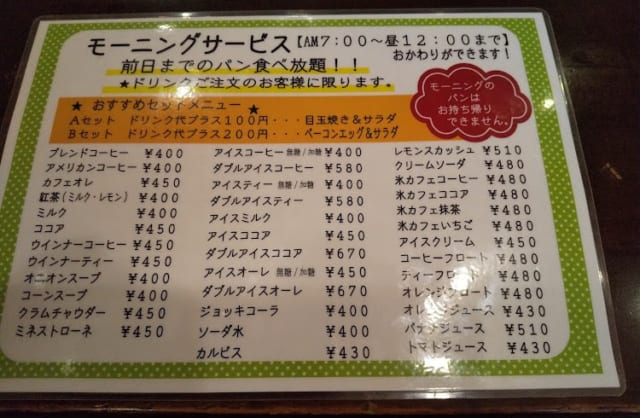 モーニングサービス【AM7:00～昼12:00まで】
おかわりができます!
前日までのパン食べ放題!!
★ドリンクご注文のお客様に限ります。
モーニングの
パンは
お持ち帰り
できません。
★ おすすめセットメニュー ★
Aセット ドリンク代プラス100円・・・目玉焼き&サラダ
Bセット ドリンク代プラス200円・・・ベーコンエッグ&サラダ
ブレンドコーヒー ¥400
アメリカンコーヒー ¥400
カフェオレ ¥450
紅茶(ミルク・レモン) ¥400
ミルク ¥400
ココア ¥450
ウインナーコーヒー ¥450
ウインナーティー ¥450
オニオンスープ ¥400
コーンスープ ¥400
クラムチャウダー ¥450
ミネストローネ ¥450
アイスコーヒー 無糖/加糖 ¥400
ダブルアイスコーヒー ¥580
アイスティー 無糖/加糖 ¥400
ダブルアイスティー ¥580
アイスミルク ¥400
アイスココア ¥450
ダブルアイスココア ¥670
アイスオーレ 無糖/加糖 ¥450
ダブルアイスオーレ ¥670
ジョッキコーラ ¥400
ソーダ水 ¥400
カルピス ¥430
レモンスカッシュ ¥510
クリームソーダ ¥480
氷カフェコーヒー ¥480
氷カフェココア ¥480
氷カフェ抹茶 ¥480
氷カフェいちご ¥480
アイスクリーム ¥450
コーヒーフロート ¥480
ティーフロート ¥480
オレンジフロート ¥480
オレンジジュース ¥430
バナナジュース ¥510
トマトジュース ¥430